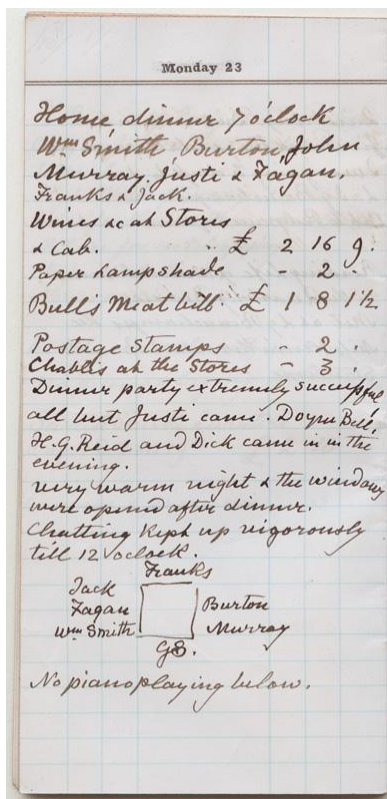 Monday 23
Home dinner 7 o'clock
Wm Smith Burton, John
Murray, Justi & Fagan.
Franks & Jack.
Wines &c at Stores
& Cab. .. £ 2 16 9.
Paper Lampshade - 2 .
Bull's Meat bill .. £ 1 8 1½
Postage Stamps - 2 .
Chablis at the Stores - 3 .
Dinner party extremely successful
all but Justi came. Doyne Bell,
H.G. Reid and Dick came in in the
evening.
very warm night & the windows
were opened after dinner.
Chatting kept up vigorously
till 12 o'clock.
Franks
Jack
Fagan Burton
Wm Smith Murray
GS.
No piano playing below.